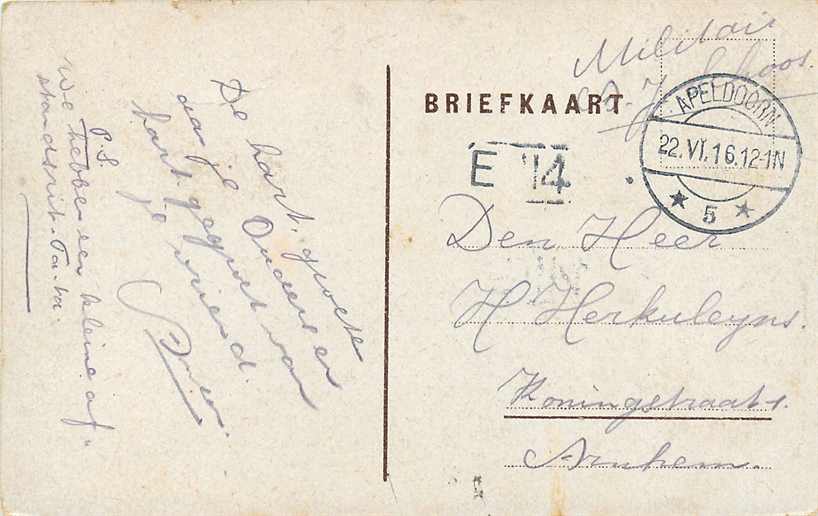 De hart. groete
aan je Ouders en
hart. gegroet van
je vriend.
P.S.
We hebben een kleine af-
standsrit. Ta-ta.
Militair
BRIEFKAART
APELDOORN
22.VI.16.12-1N
5
E 14
Den Heer
H Herkuleyns.
Koningstraat 1.
Arnhem.